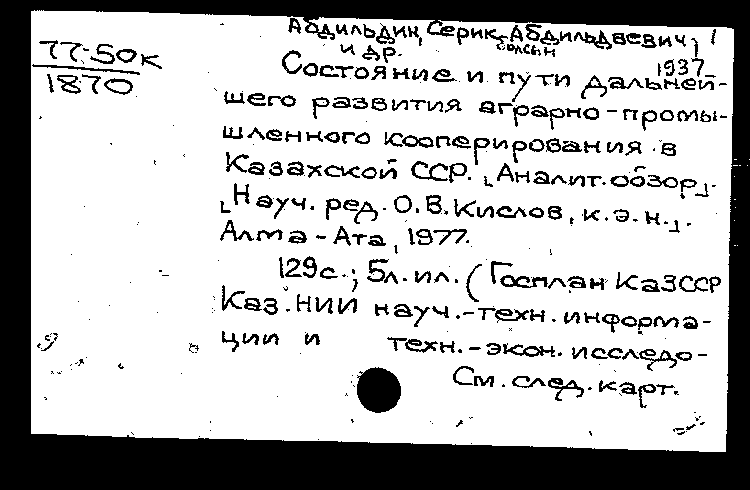 77-50к
1870
Абдильдин, Серик Абдильдаевич, 1
и др.
1937
Состояние и пути дальней-
шего развития аграрно-промы-
шленного кооперирования в
Казахской ССР. [Аналит. обзор].
[Науч. ред. О.В. Кислов, к.э.н.].
Алма-Ата, 1977.
129с.; 5л.ил. (Госплан КазССР
Каз.НИИ науч.-техн. информа-
ции и техн.-экон. исследо-
См. след. карт.